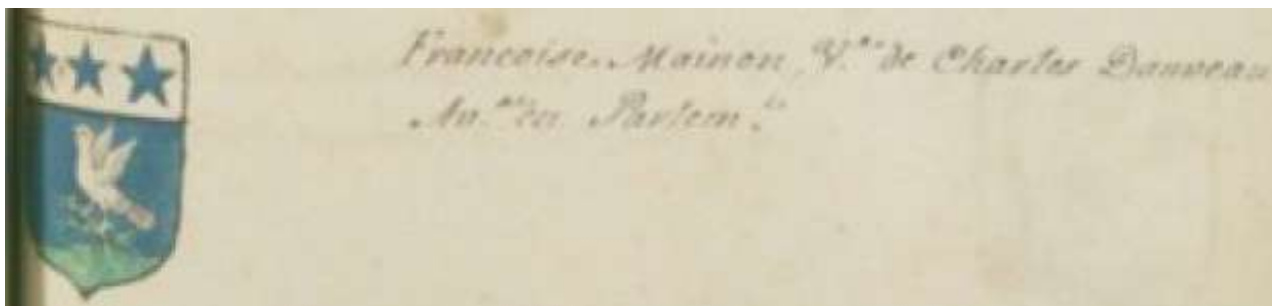 Francoise Mainon, V.ve de Charles Dauveau
Av.at en Parlem.t